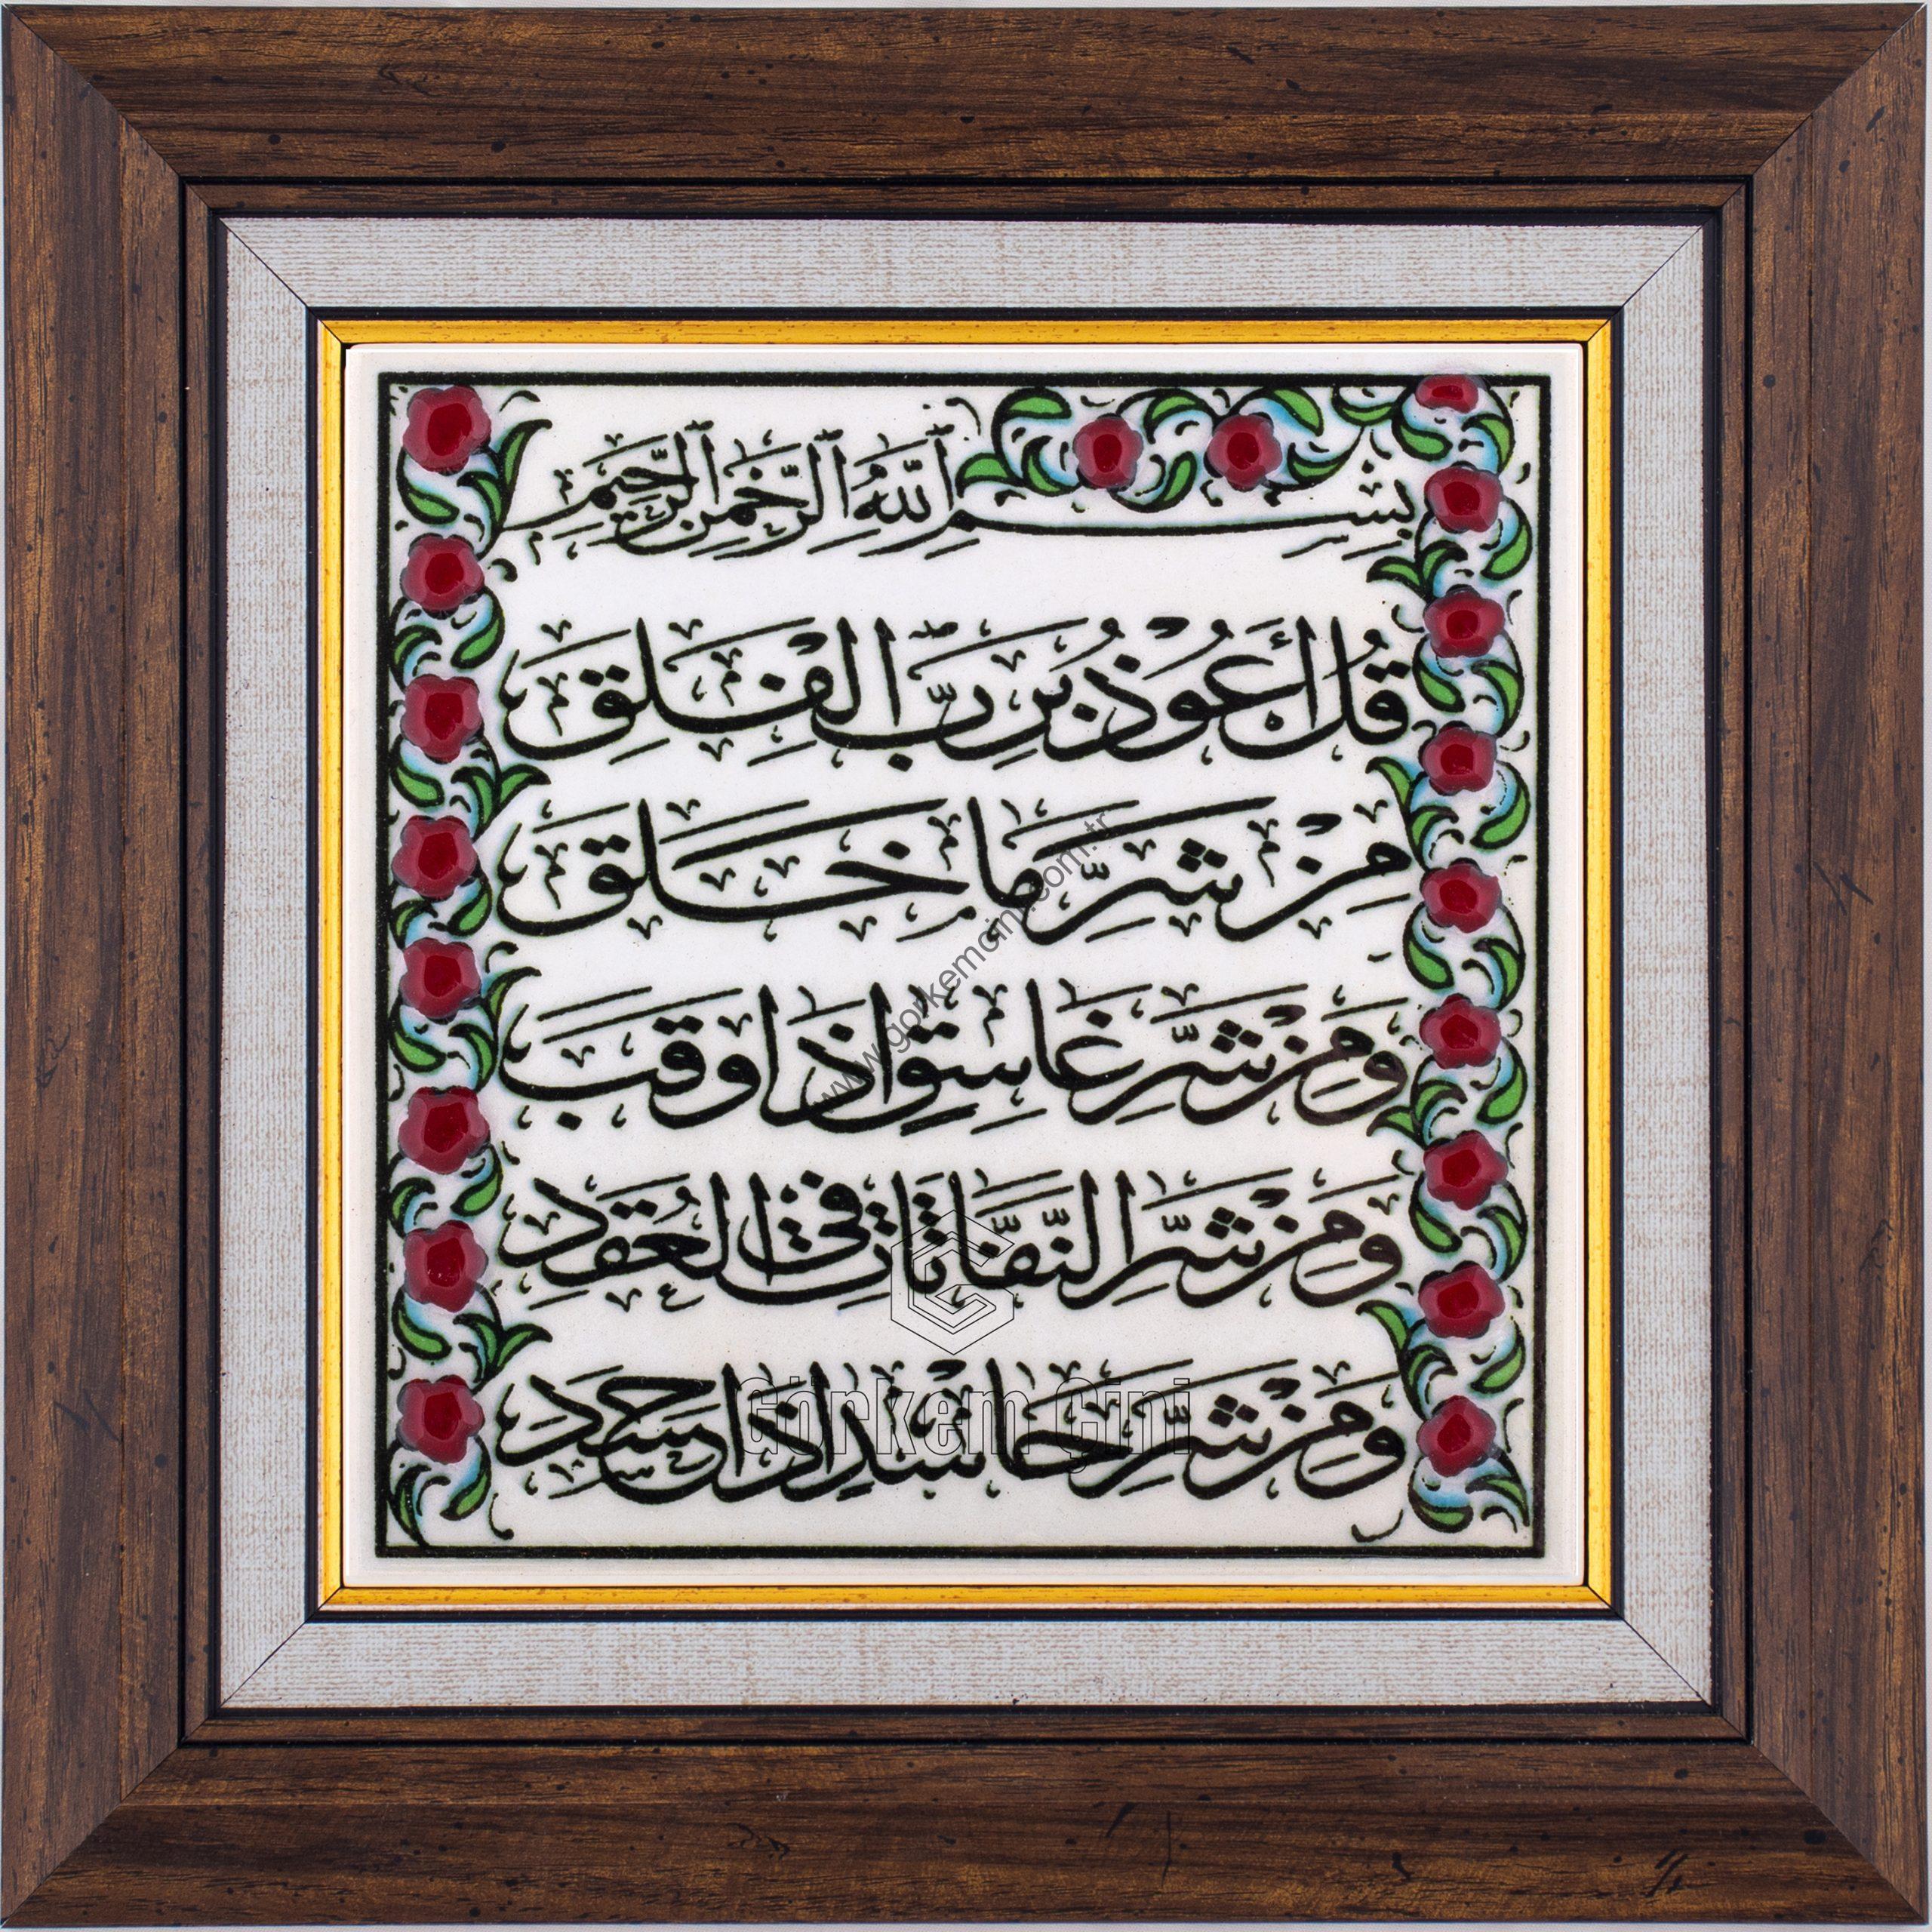 بِسْمِ اللّٰهِ الرَّحْمٰنِ الرَّحِيمِ
قُلْ أَعُوْذُ بِرَبِّ الْفَلَقِ
مِنْ شَرِّ مَا خَلَقَ
وَمِنْ شَرِّ غَاسِقٍ اِذَا وَقَبَ
وَمِنْ شَرِّ النَّفَّاثَاتِ فِى الْعُقَدِ
وَمِنْ شَرِّ حَاسِدٍ اِذَا حَسَدَ
www.gorkemcini.com.tr
Görkem Çini